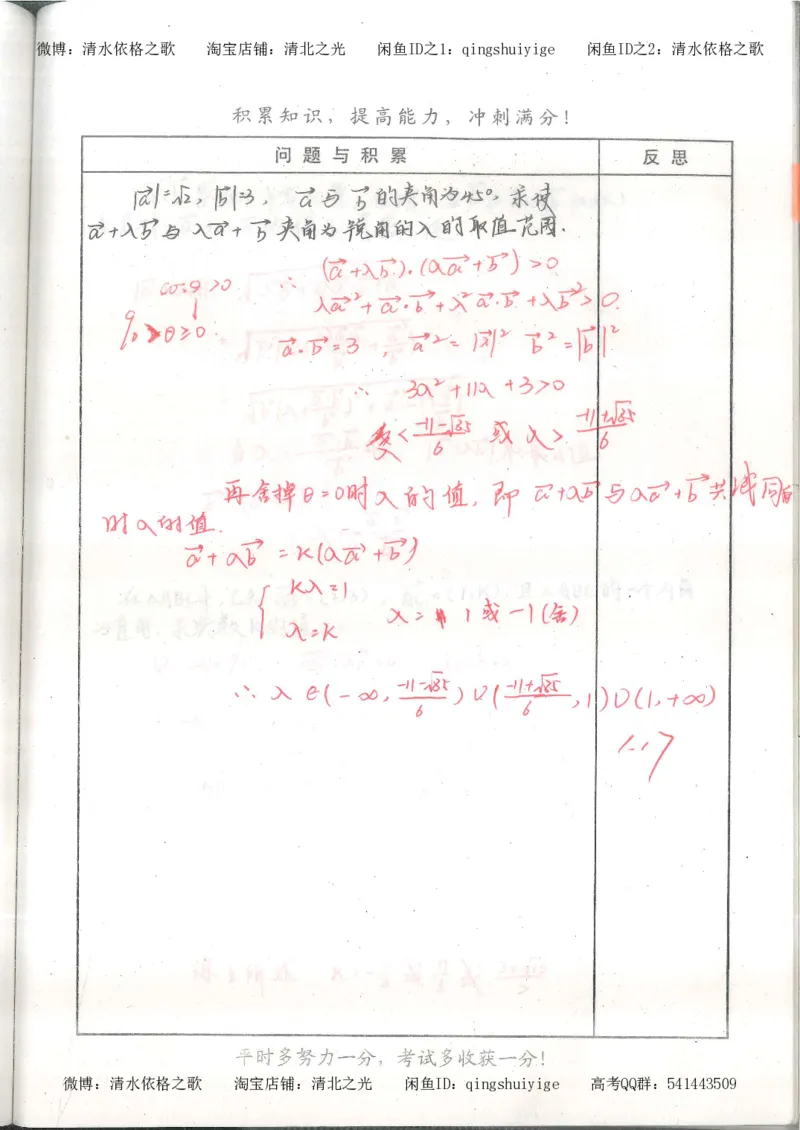 微博：清水依格之歌 淘宝店铺：清北之光 闲鱼ID之1：qingshuiyige 闲鱼ID之2：清水依格之歌
积累知识，提高能力，冲刺满分！
问题与积累 反思
|a⃗|=√2, |b⃗|=3, a⃗与b⃗的夹角为45°, 求使
a⃗+λb⃗与λa⃗+b⃗夹角为锐角的λ的取值范围.
∴ (a⃗+λb⃗)·(λa⃗+b⃗)>0
cosθ>0
λa⃗²+a⃗·b⃗+λ²a⃗·b⃗+λb⃗²>0.
90>θ≥0.
a⃗·b⃗=3, a⃗²=|a⃗|² b⃗²=|b⃗|²
∴ 3λ²+11λ+3>0
λ<(-11-√85)/6 或 λ>(-11+√85)/6
再舍掉θ=0时λ的值, 即 a⃗+λb⃗与λa⃗+b⃗共线同向
时λ的值.
a⃗+λb⃗=K(λa⃗+b⃗)
{Kλ=1
λ=K
λ=1或-1(舍)
∴ λ∈(-∞, (-11-√85)/6)∪((-11+√85)/6, 1)∪(1,+∞)
平时多努力一分，考试多收获一分！
微博：清水依格之歌 淘宝店铺：清北之光 闲鱼ID：qingshuiyige 高考QQ群：541443509